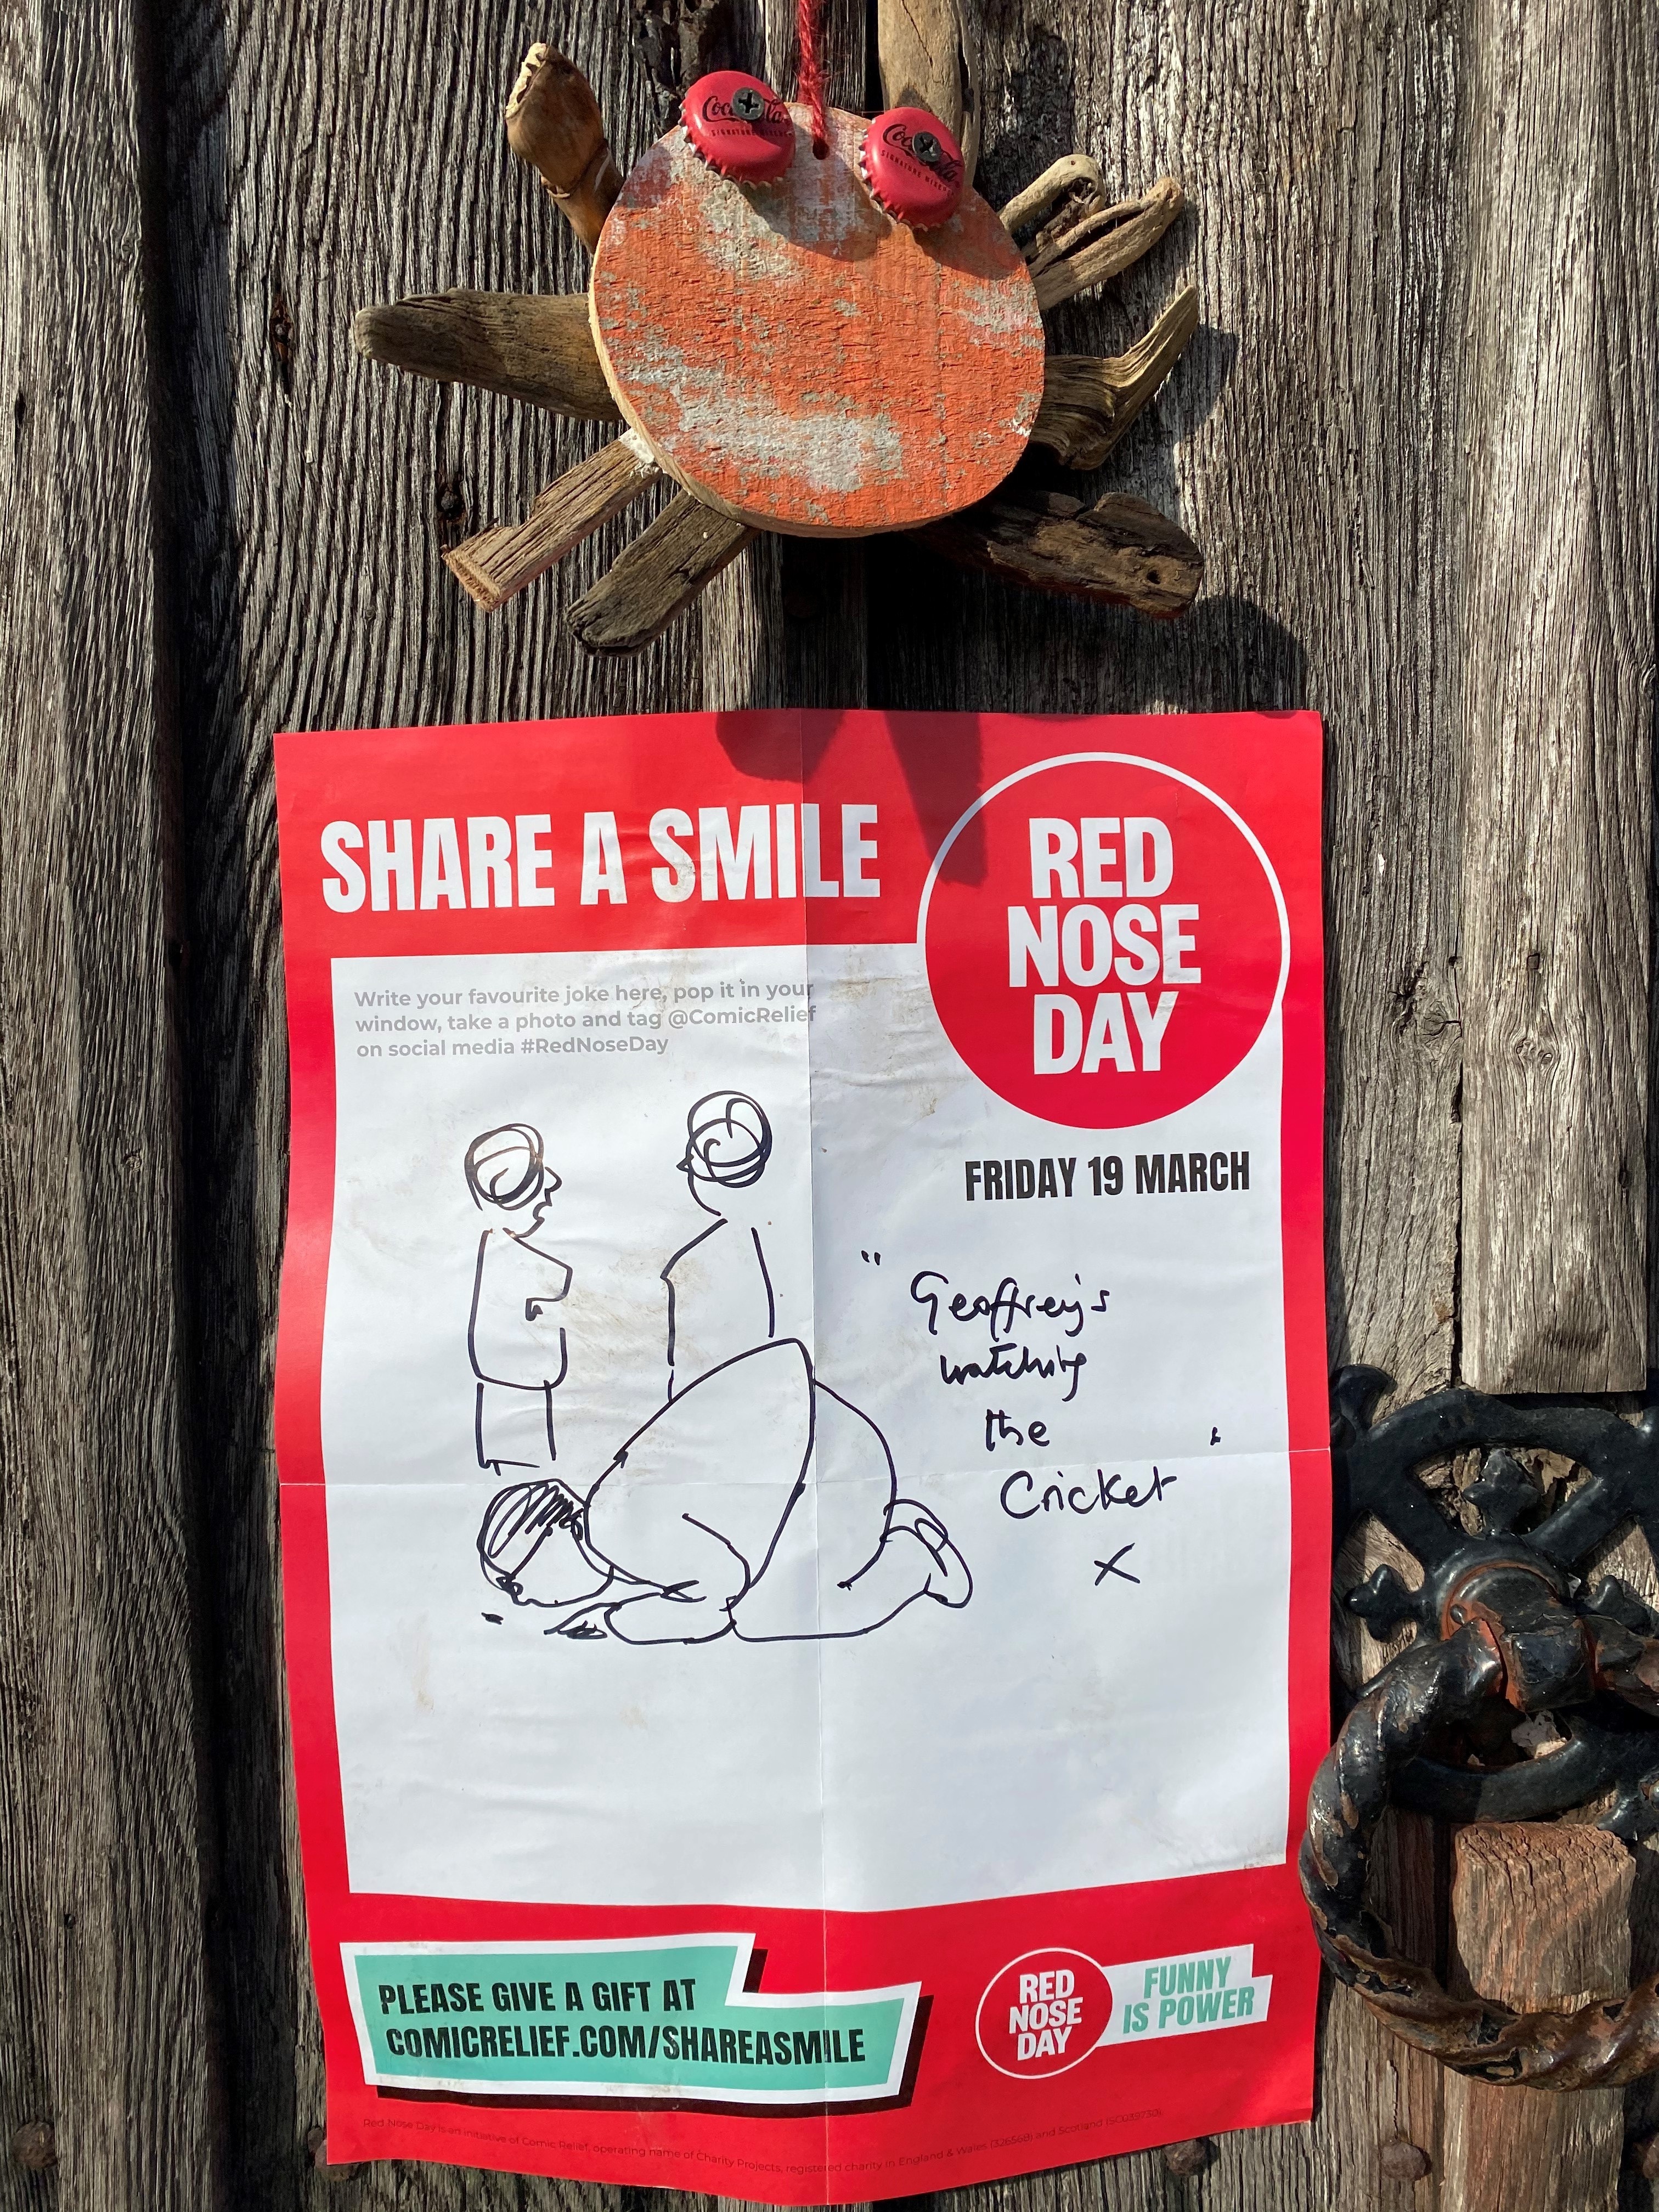 Coca-Cola
SIGNATURE MIXERS
Coca-Cola
SIGNATURE MIXERS
SHARE A SMILE
RED
NOSE
DAY
Write your favourite joke here, pop it in your
window, take a photo and tag @ComicRelief
on social media #RedNoseDay
FRIDAY 19 MARCH
"Geoffrey's
watching
the
Cricket
X
PLEASE GIVE A GIFT AT
COMICRELIEF.COM/SHAREASMILE
RED
NOSE
DAY
FUNNY
IS POWER
Red Nose Day is an initiative of Comic Relief, operating name of Charity Projects, registered charity in England & Wales (326568) and Scotland (SC039730)